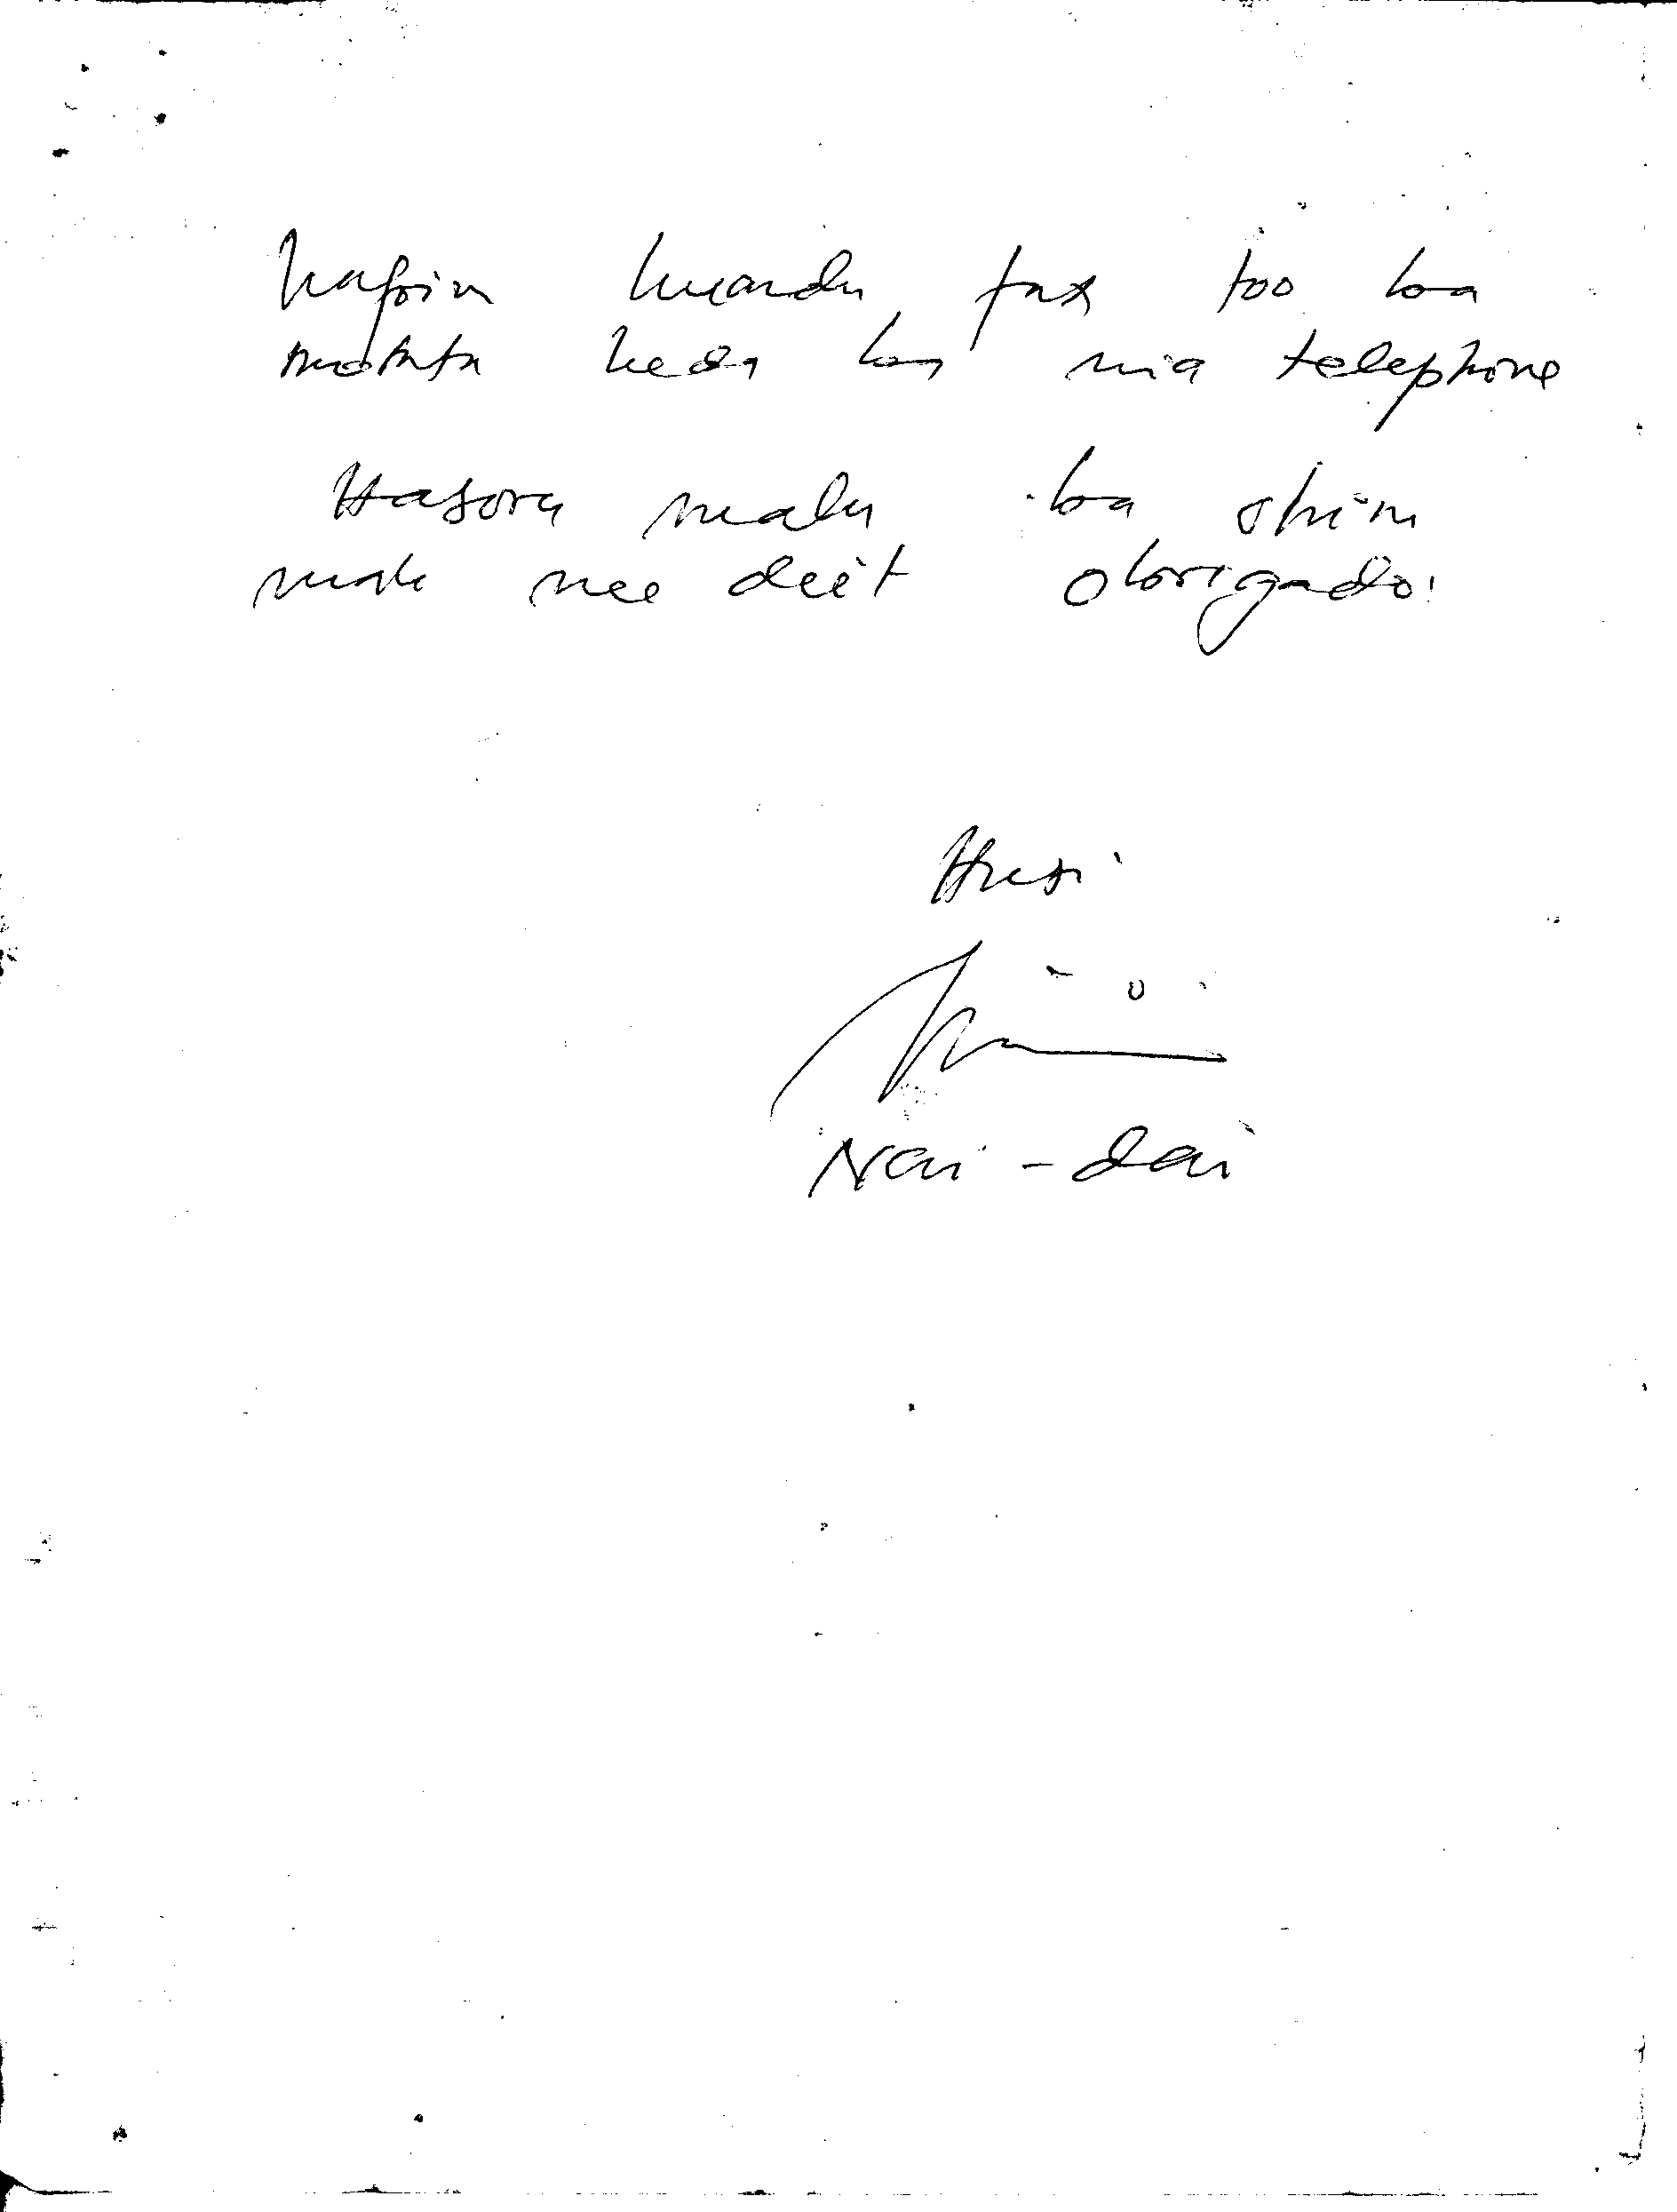 hafoin manda fax too ba
keda ba nia telephone
Hasoru malu ba ohin
mak nee deit obrigado.
Husi
Nai-dai